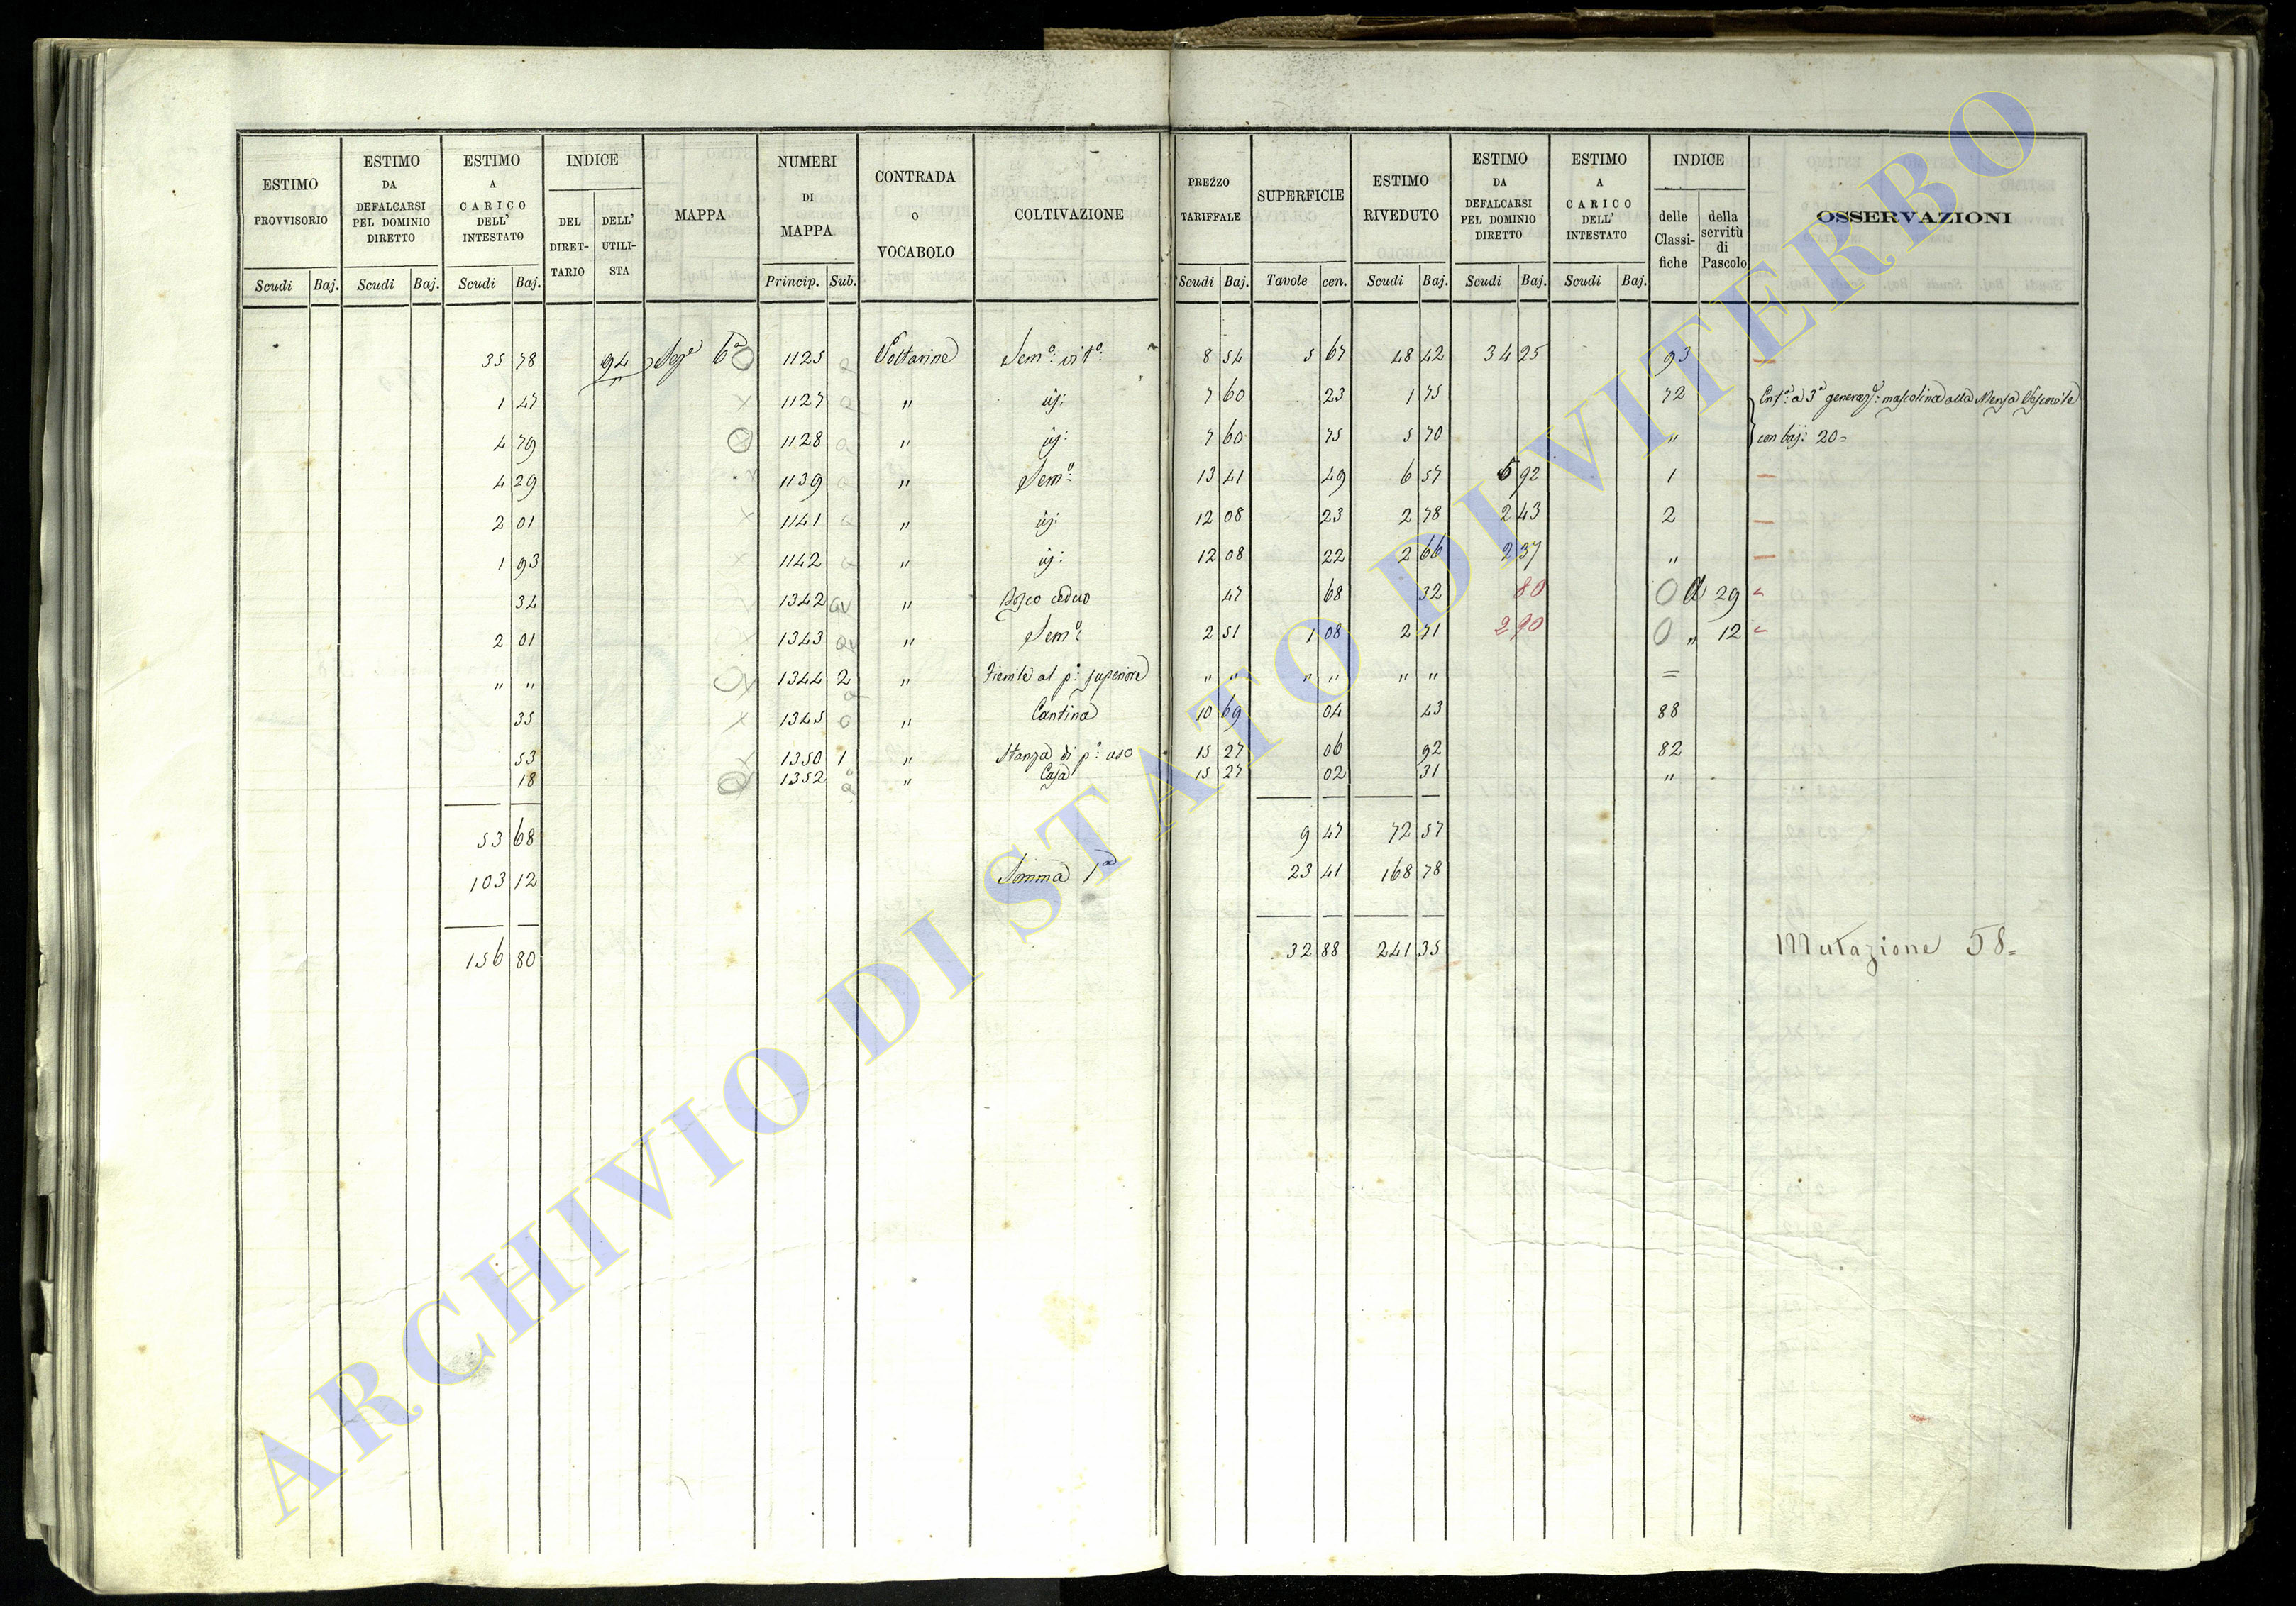 ESTIMO PROVVISORIO | ESTIMO DA DEFALCARSI PEL DOMINIO DIRETTO | ESTIMO A CARICO DELL' INTESTATO | INDICE | MAPPA | NUMERI DI MAPPA | CONTRADA O VOCABOLO | COLTIVAZIONE | PREZZO TARIFFALE | SUPERFICIE | ESTIMO RIVEDUTO | ESTIMO DA DEFALCARSI PEL DOMINIO DIRETTO | ESTIMO A CARICO DELL' INTESTATO | INDICE | OSSERVAZIONI
DEL DIRET-TARIO | DELL' UTILI-STA | delle Classi-fiche | della servitù di Pascolo
Scudi | Baj. | Scudi | Baj. | Scudi | Baj. | Princip. | Sub. | Scudi | Baj. | Tavole | cen. | Scudi | Baj. | Scudi | Baj. | Scudi | Baj.
35 78 | 94 | Sez.e 6a | 1125 | a | Voltarine | Sem.o vit.o | 8 54 | 5 67 | 48 42 | 34 25 | 93 | —
1 47 | 1127 | a | " | id: | 7 60 | 23 | 1 75 | 72 | Ent.a a 3a generaz: mascolina alla Mensa Vescovile
4 79 | 1128 | a | " | id: | 7 60 | 75 | 5 70 | " | con baj: 20=
4 29 | 1139 | a | " | Sem.o | 13 41 | 49 | 6 57 | 5 92 | 1 | —
2 01 | 1141 | a | " | id: | 12 08 | 23 | 2 78 | 2 43 | 2 | —
1 93 | 1142 | a | " | id: | 12 08 | 22 | 2 66 | 2 37 | " | —
34 | 1342 | av | " | Bosco ceduo | 47 | 68 | 32 | 80 | 29
2 01 | 1343 | av | " | Sem.o | 2 51 | 1 08 | 2 71 | 2 90 | " 12
" " | 1344 | 2 | " | Fienile al p.o superiore | " " | " " | " " | =
35 | 1345 | a | " | Cantina | 10 69 | 04 | 43 | 88
53 | 1350 | 1 | " | Stanza di p.o uso | 15 27 | 06 | 92 | 82
18 | 1352 | a | " | Casa | 15 27 | 02 | 31 | "
53 68 | 9 47 | 72 57
103 12 | Somma 1a | 23 41 | 168 78
156 80 | 32 88 | 241 35 | Mutazione 58=
ARCHIVIO DI STATO DI VITERBO